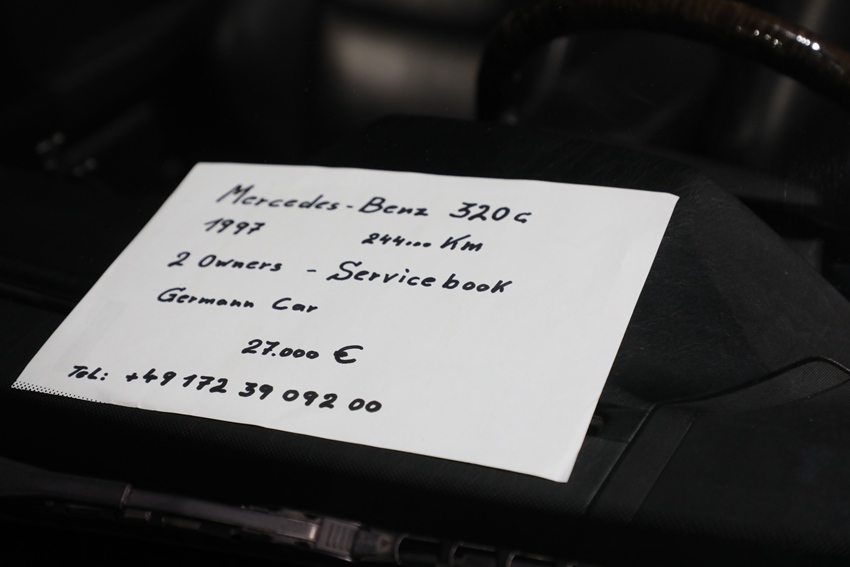 Mercedes-Benz 320 G
1997 244... Km
2 Owners - Servicebook
Germann Car
27.000 €
Tel: +49 172 39 092 00